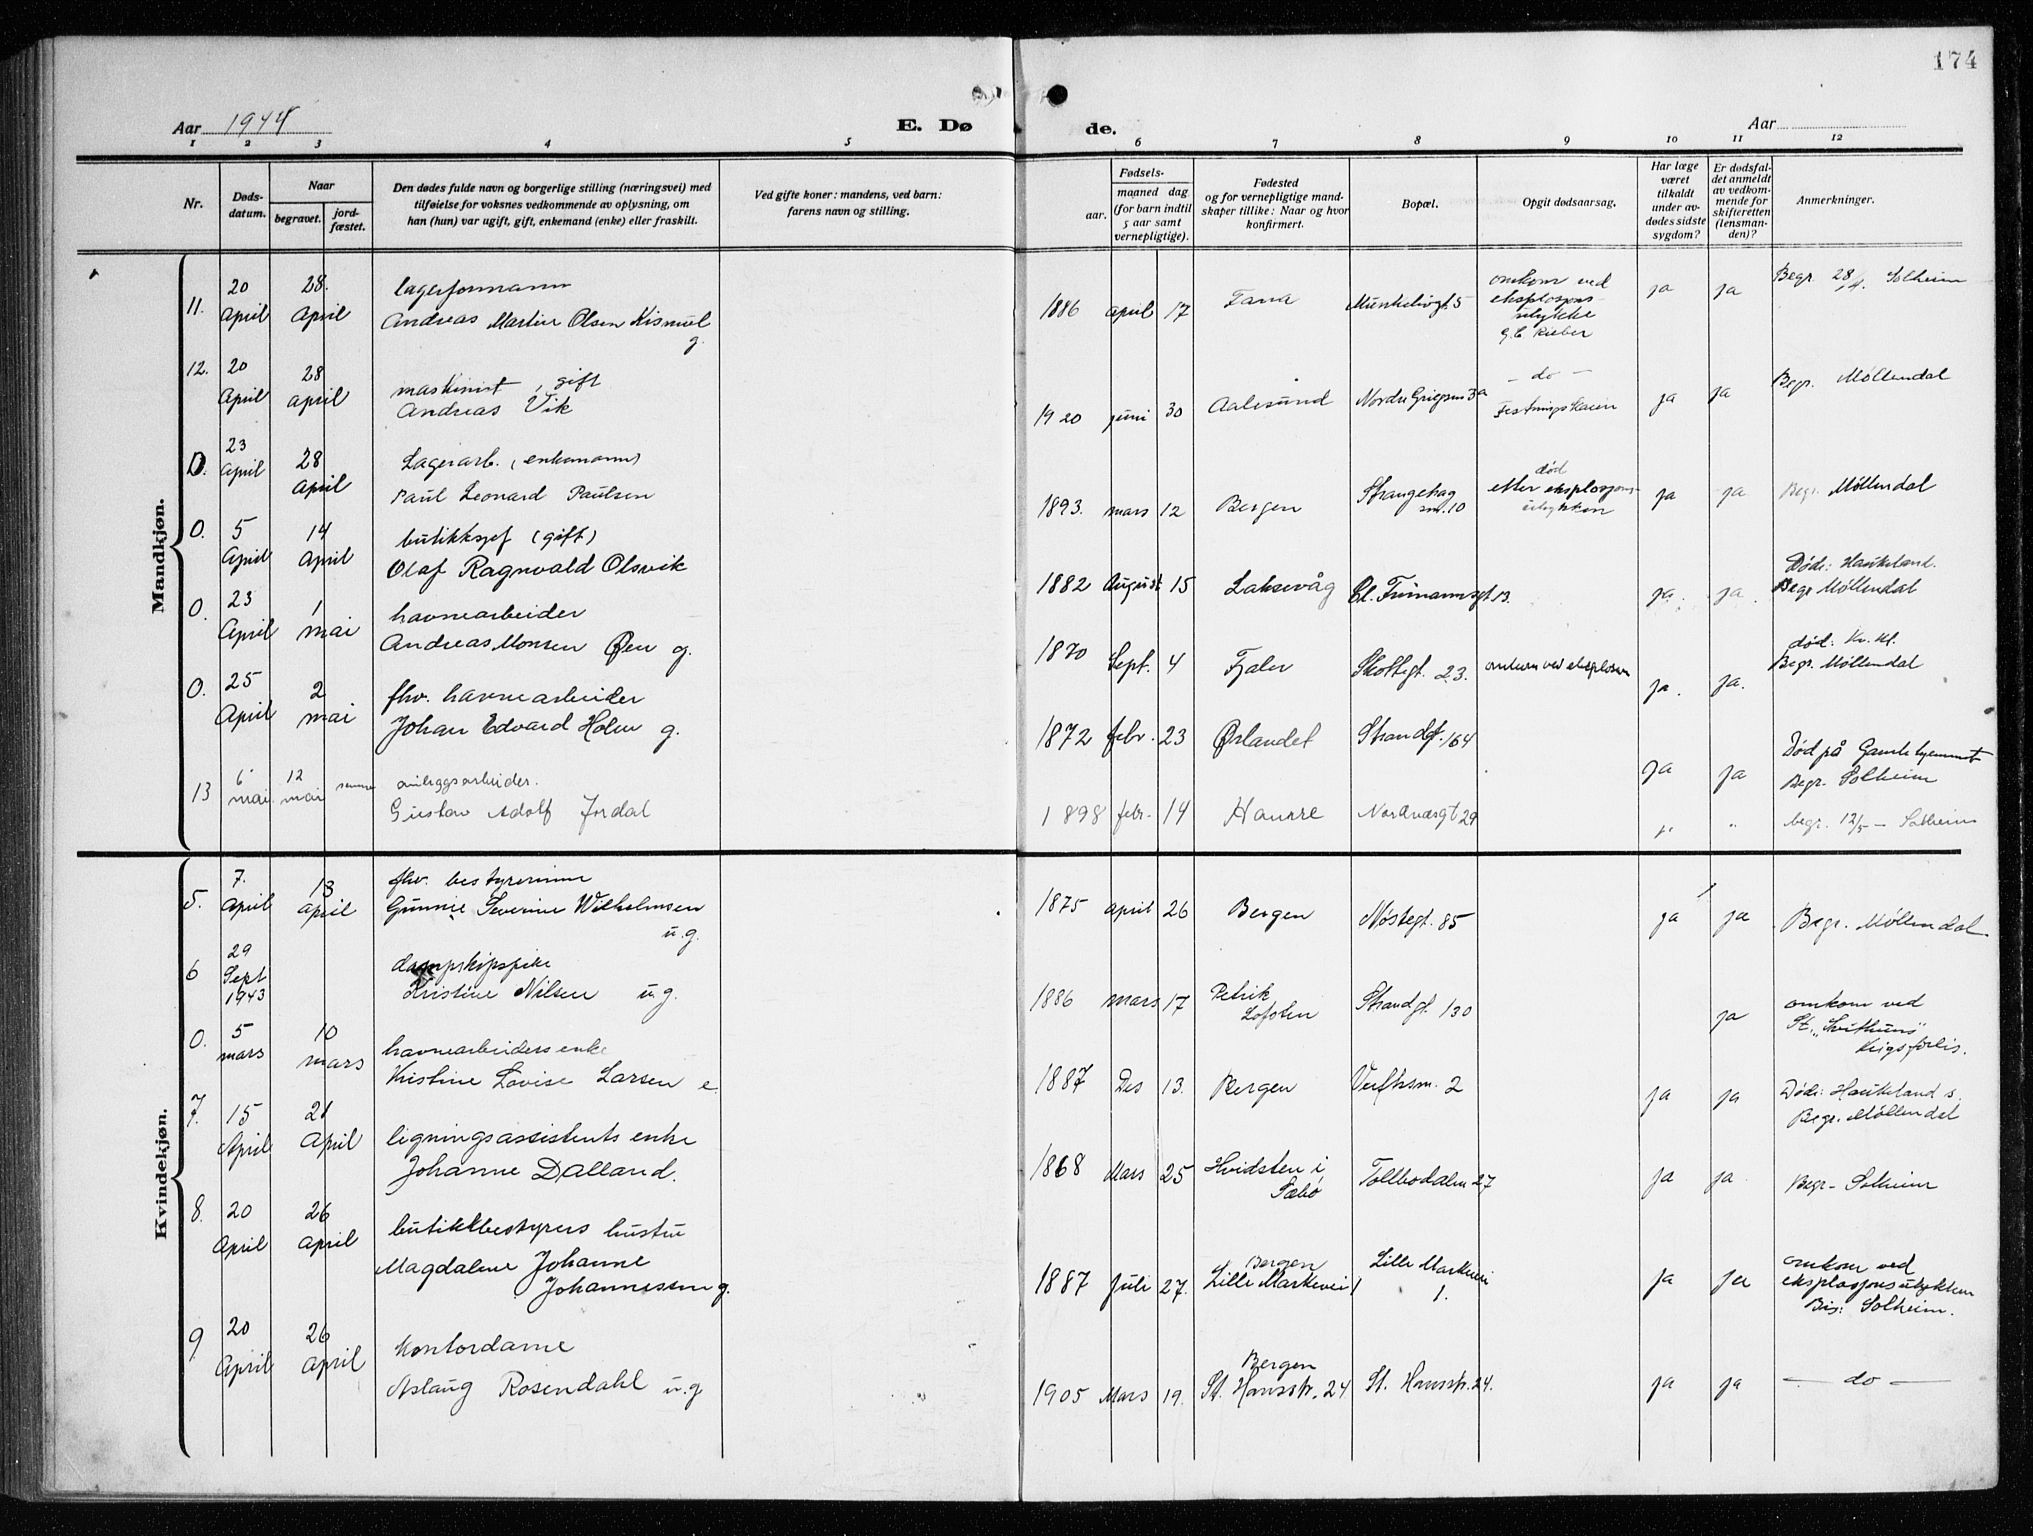 174
Aar 1944
E. Dø
de.
Aar
1 2 3 4 5 6 7 8 9 10 11 12
Nr.
Døds-
datum.
Naar
begravet.
jord-
fæstet.
Den dødes fulde navn og borgerlige stilling (næringsvei) med
tilføielse for voksnes vedkommende av oplysning, om
han (hun) var ugift, gift, enkemand (enke) eller fraskilt.
Ved gifte koner: mandens, ved barn:
farens navn og stilling.
Fødsels-
aar.
maaned dag
(for barn indtil
5 aar samt
vernepligtige).
Fødested
og for vernepligtige mand-
skaper tillike: Naar og hvor
konfirmert.
Bopæl.
Opgit dødsaarsag.
Har læge
været
tilkaldt
under av-
dødes sidste
sygdom?
Er dødsfal-
det anmeldt
av vedkom-
mende for
skifteretten
(lensman-
den)?
Anmerkninger.
Mandkjøn.
11. 20 April 28. April
lagerformann
Andreas Martin Olsen Kismul
g.
1886 april 17 Fana
omkom ved
eksplosjons-
ulykke
G.C. Rieber
ja ja
Begr. 28/4. Solheim
12. 20 April 28 april
maskinist, gift
Andreas Vik
1920 juni 30 Aalesund
- do -
Festningskaien
ja ja
Begr. Møllendal
D. 23 April 28 April
Lagerarb. (enkemann)
Paul Leonard Paulsen
1893. mars 12 Bergen
Strangehag
sm. 10
død
etter eksplosjons-
ulykken
ja ja
Begr. Møllendal
O. 5 April 14 April
butikksjef (gift)
Olaf Ragnvald Olsvik
1882 August 15 Laksevåg
ja ja
Død: Haukeland.
Begr Møllendal
O. 23 April 1 mai
havnearbeider
Andreas Monsen Øen g.
1870 Sept. 4 Fjaler
Skottegt. 23.
omkom ved eksplosjon
ja. ja.
død: Kv. Kl.
Begr. Møllendal
O. 25 April 2 mai
fhv. havnearbeider
Johan Edvard Holm g.
1872 febr. 23 Ørlandet
Strandgt. 164
ja ja
Død på Gamlehjemmet
Begr. Solheim
13 6 mai 12 mai samme
anleggsarbeider.
Gustav Adolf Jordal
1898 febr. 14
Nordnæsgt 29
" "
begr. 12/5 - Solheim
Kvindekjøn.
5. 7. April 13 april
fhv. bestyrerinne
Gunnie Severine Wilhelmsen
u.g.
1875 april 26 Bergen
Nøstegt. 85
ja ja
Begr. Møllendal
6 29 Sept 1943
dampskipspike
Kristine Nilsen u.g.
1886 mars 17
Lofoten
Strandgt. 130
ja
omkom ved
St. "Svithuns"
krigsforlis.
O. 5 mars 10 mars
havnearbeiders enke
Kristine Lovise Larsen e
1887 Des 13. Bergen
Verftsm. 2
ja ja
Død: Haukeland s.
Begr. Møllendal
7. 15 April 21 April
ligningsassistents enke
Johanne Dalland.
1868 Mars 25
Hvidsten i
Sæbø
Tollbodalm 27
ja ja
Begr - Solheim
8. 20 April 26 april
butikkbestyrers hustru
Magdalene Johanne
Johannessen g.
1887 Juli 27.
Bergen
Lille Markevei 1
Lille Markevei
1.
ja ja
omkom ved
eksplosjonsulykken
Bis: Solheim.
9 20 April 26 April
Kontordame
Aslaug Rosendahl u.g
1905 Mars 19.
Bergen
St. Hansstr. 24
St. Hansstr. 24.
ja ja
- do -